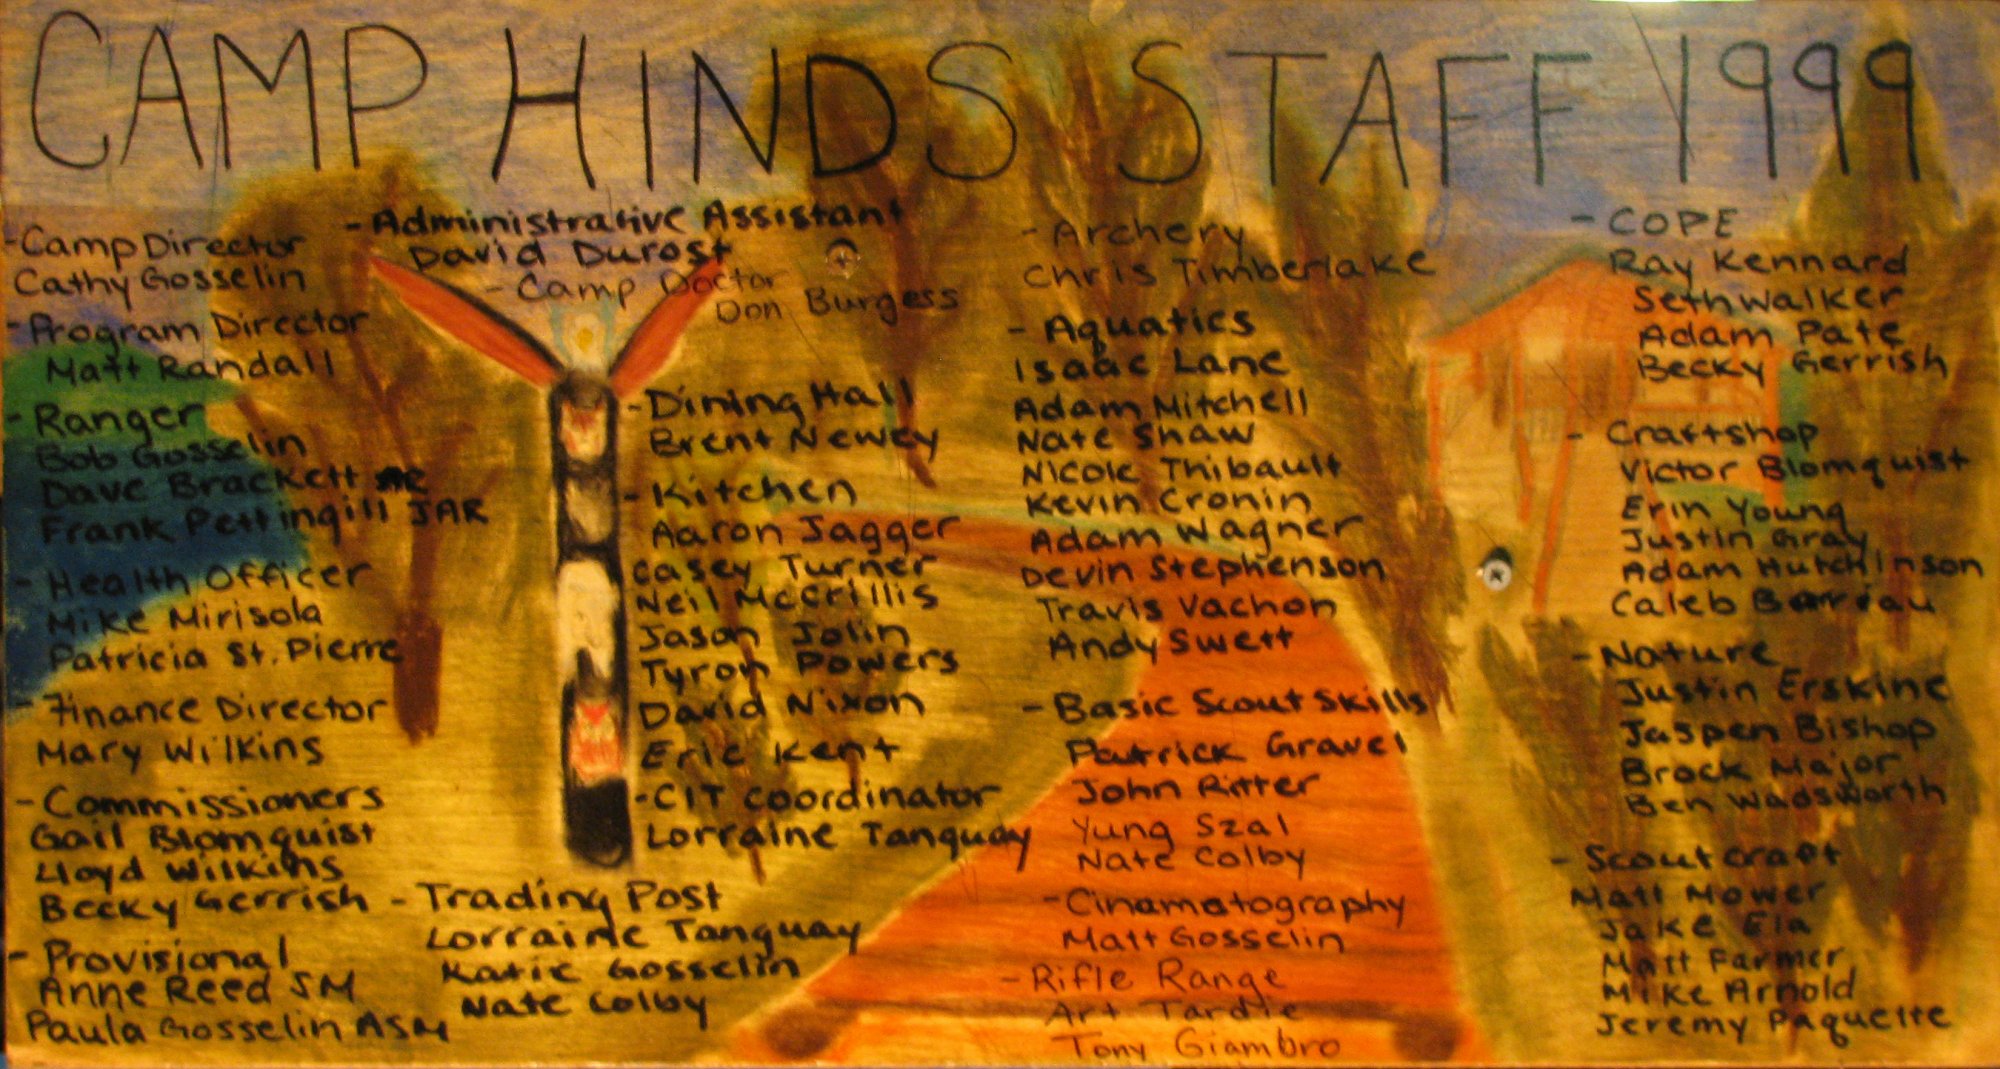 CAMP HINDS STAFF 1999
- Camp Director
Cathy Gosselin
- Program Director
Matt Randall
- Ranger
Bob Gosselin
Dave Brackett
Frank Pettingill JAR
- Health Officer
Mike Mirisola
Patricia St. Pierre
- Finance Director
Mary Wilkins
- Commissioners
Gail Blomquist
Lloyd Wilkins
Becky Gerrish
- Provisional
Anne Reed SM
Paula Gosselin ASM
- Administrative Assistant
David Durost
- Camp Doctor
Don Burgess
- Dining Hall
Brent Newey
- Kitchen
Aaron Jagger
Casey Turner
Neil McCrillis
Jason Jolin
Tyron Powers
David Nixon
Eric Kent
- CIT Coordinator
Lorraine Tanguay
- Trading Post
Lorraine Tanguay
Katie Gosselin
Nate Colby
- Archery
Chris Timberlake
- Aquatics
Isaac Lane
Adam Mitchell
Nate Shaw
Nicole Thibault
Kevin Cronin
Adam Wagner
Devin Stephenson
Travis Vachon
Andy Swett
- Basic Scout Skills
Patrick Gravel
John Ritter
Yung Szal
Nate Colby
- Cinamatography
Matt Gosselin
- Rifle Range
Art Tardie
Tony Giambro
- COPE
Ray Kennard
Seth Walker
Adam Pate
Becky Gerrish
- Craftshop
Victor Blomquist
Erin Young
Justin Gray
Adam Hutchinson
Caleb Barriau
- Nature
Justin Erskine
Jaspen Bishop
Brock Major
Ben Wadsworth
- Scoutcraft
Matt Mower
Jake Ela
Matt Farmer
Mike Arnold
Jeremy Paquette